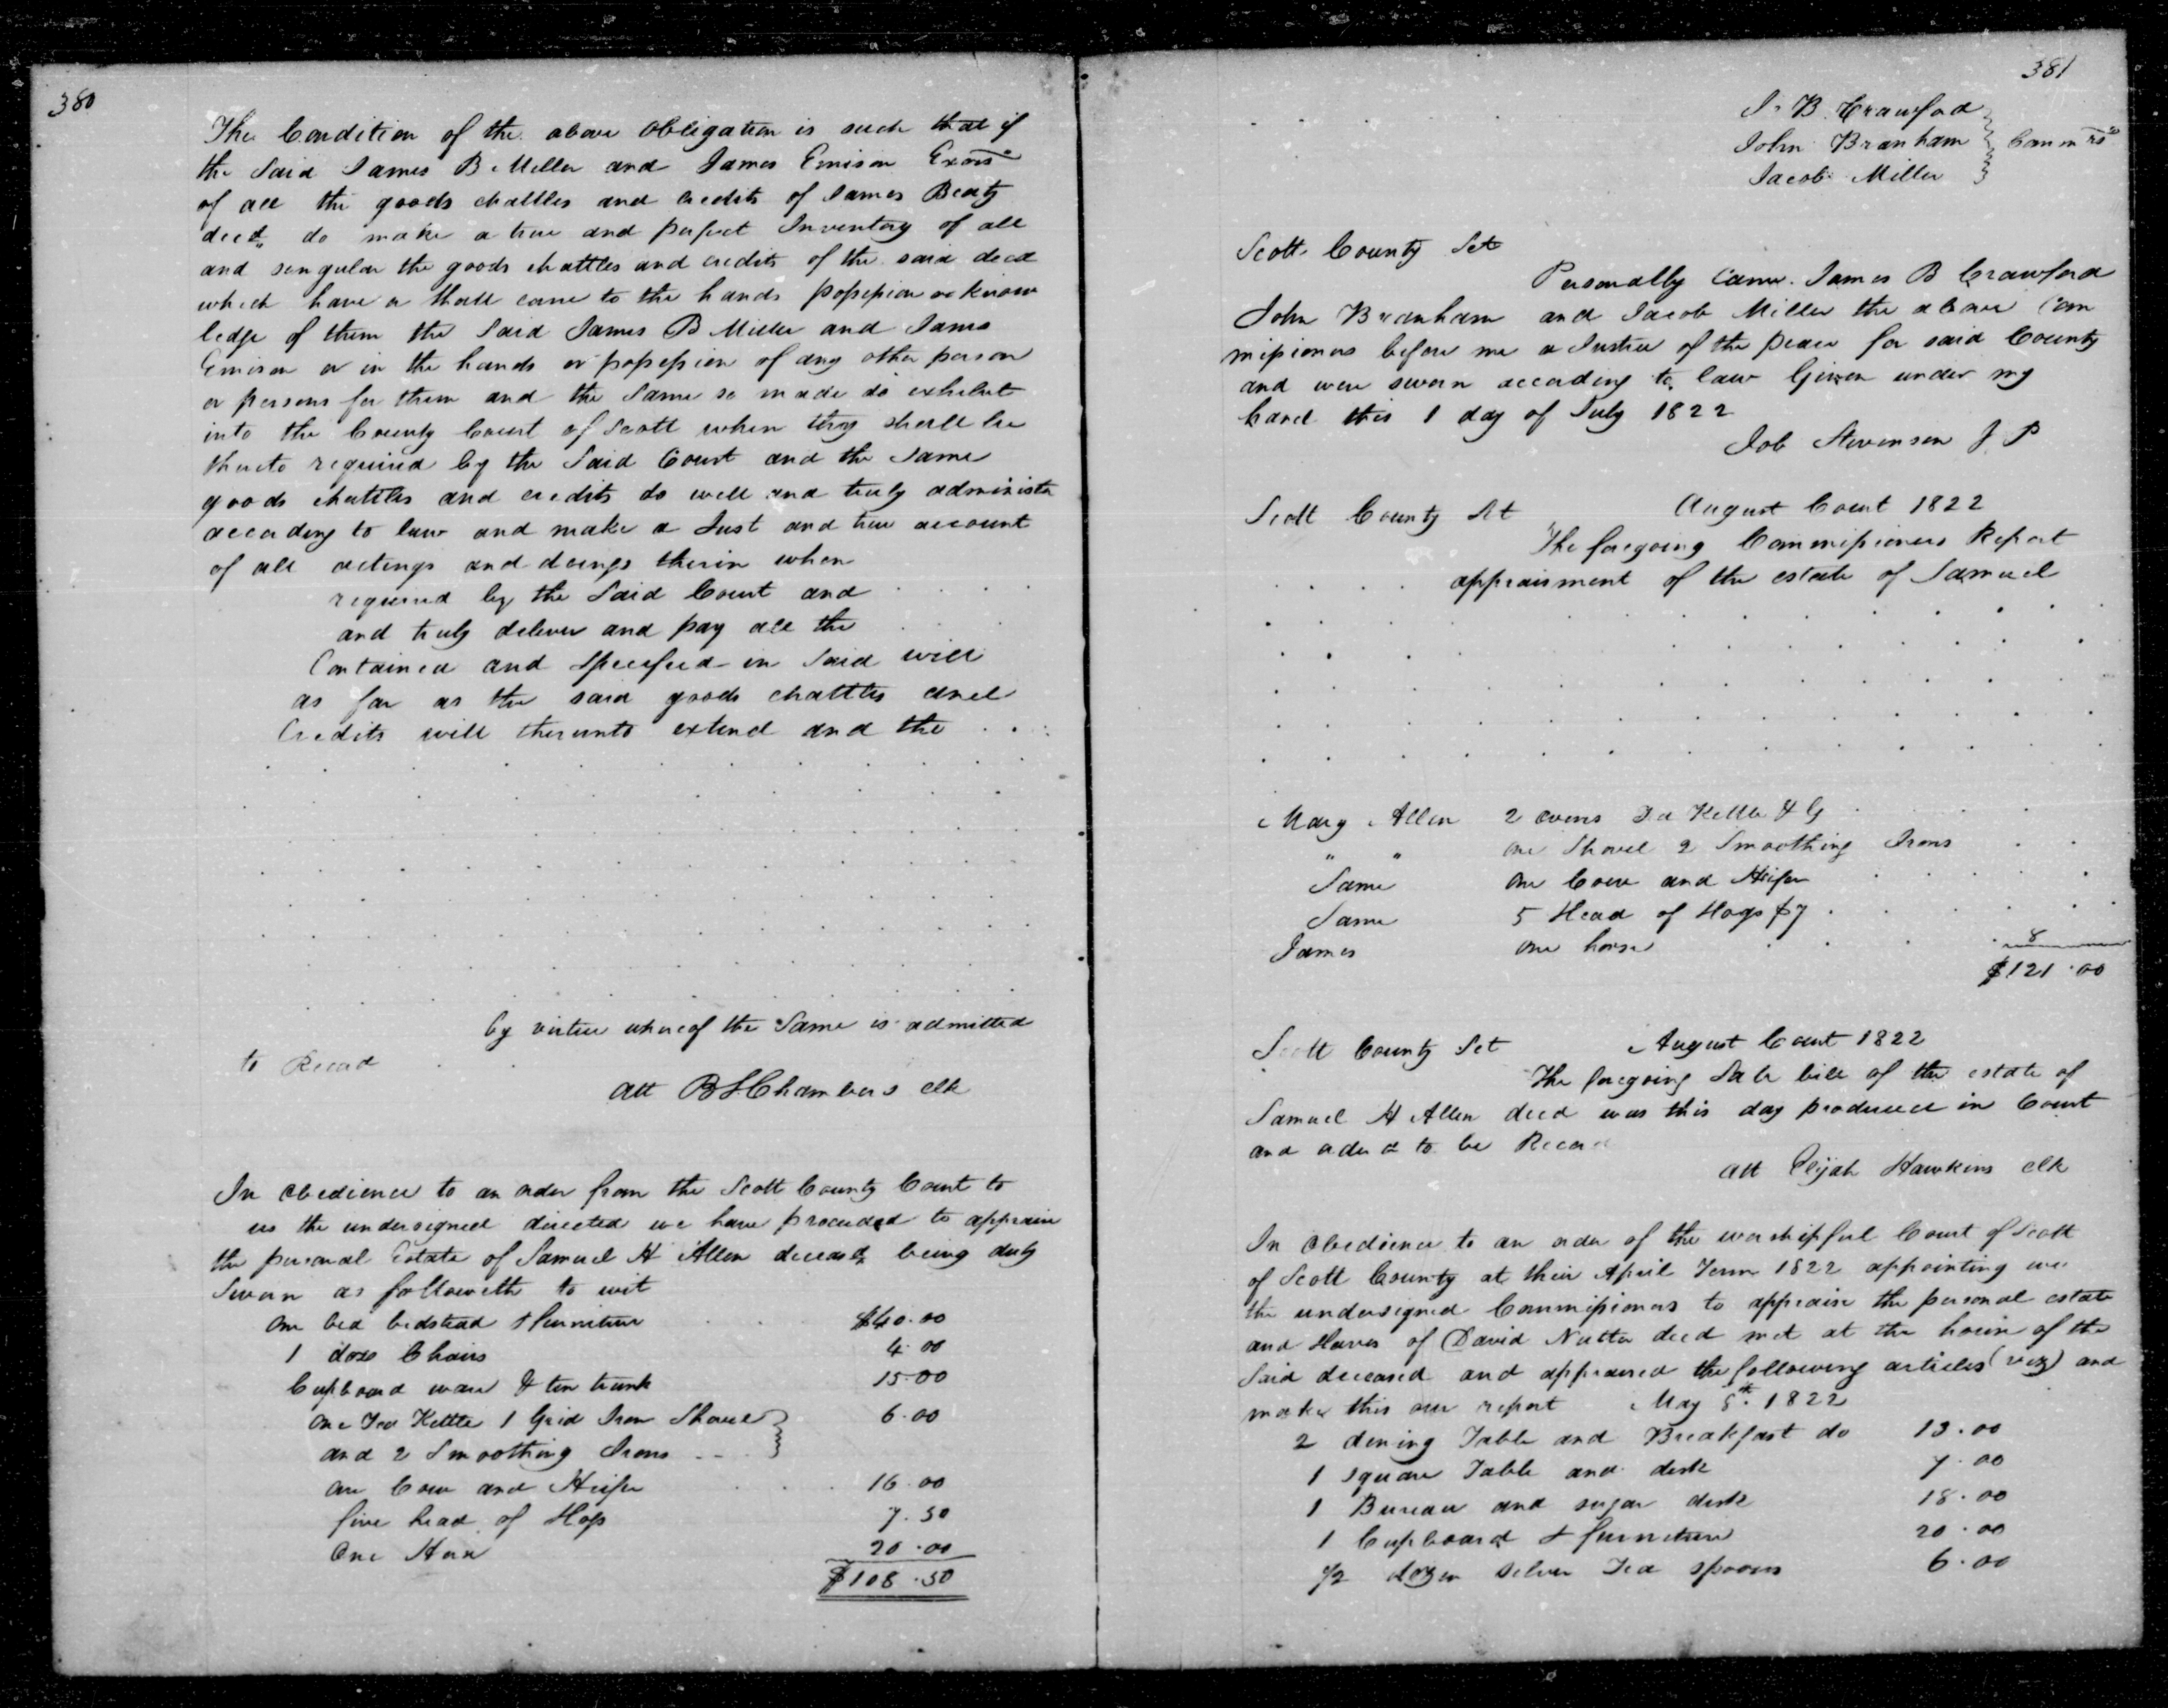 380
The Condition of the above obligation is such that if
the Said James B Miller and James Emison Exors
of all the goods chattles and credits of James Beaty
decd do make a true and perfect Inventory of all
and singular the goods chattles and credits of the said decd
which have or shall come to the hands possession or know
ledge of them the Said James B Miller and James
Emison or in the hands or possession of any other person
or persons for them and the Same so made do exhibit
into the County Court of Scott when they shall be
thereto required by the Said Court and the Same
goods chattles and credits do well and truly administer
according to law and make a Just and true account
of all actings and doings therein when
required by the Said Court and
and truly deliver and pay all the
Contained and Specified in Said will
as far as the said goods chattles and
Credits will thereunto extend and the
by virtue whereof the Same is admitted
to Record
Att B S Chambers clk
In obedience to an order from the Scott County Court to
us the undersigned directed we have proceeded to appraise
the personal Estate of Samuel H Allen deceasd being duly
Sworn as followeth to wit
One bed bedstead & furniture $40.00
1 doze Chairs 4.00
Cupboard ware & tin trunk 15.00
One Tea Kettle 1 Grid Iron Shovel 6.00
and 2 Smoothing Irons
One Cow and Heifer 16.00
five head of Hogs 7.50
One Horse 20.00
$108.50
381
J. B. Crawford
John Branham Commrs
Jacob Miller
Scott County Sct
Personally came James B Crawford
John Branham and Jacob Miller the above Com
missioners before me a Justice of the peace for said County
and were sworn according to law Given under my
hand this 1 day of July 1822
Job Stevenson J P
Scott County Sct August Court 1822
The foregoing Commissioners Report
appraisment of the estate of Samuel
Mary Allen 2 ovens Tea Kettle & G
" " one Shovel 2 Smoothing Irons
Same One Cow and Heifer
Same 5 Head of Hogs $7
James one horse 8
$121.00
Scott County Sct August Court 1822
The foregoing Sale bill of the estate of
Samuel H Allen decd was this day produced in Court
and orderd to be Record
Att Elijah Hawkins clk
In obedience to an order of the worshipful Court of Scott
of Scott County at their April Term 1822 appointing we
the undersigned Commissioners to appraise the personal estate
and slaves of David Nutter decd met at the house of the
Said deceased and appraised the following articles (viz) and
make this our report May 5th 1822
2 dining Table and Breakfast do 13.00
1 square Table and desk 7.00
1 Bureau and sugar desk 18.00
1 Cupboard & furniture 20.00
1/2 dozen silver Tea spoons 6.00